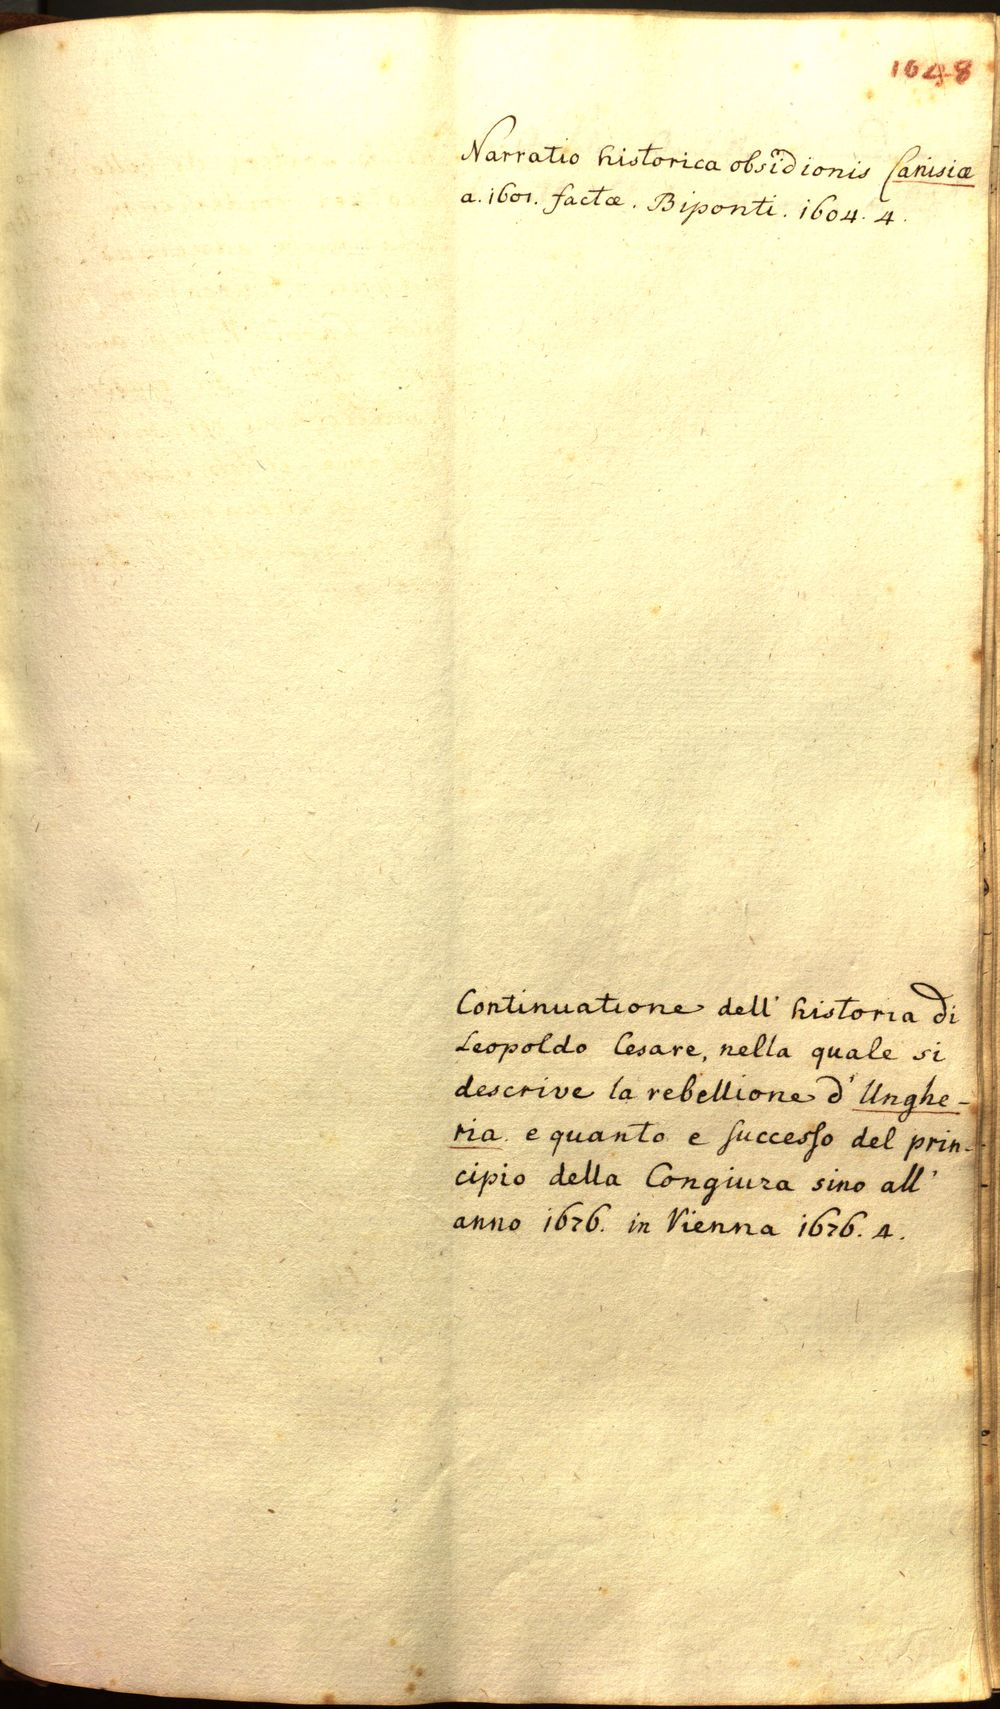 1648
Narratio historica obsidionis Canisiæ
a. 1601. factæ. Biponti. 1604. 4.
Continuatione dell' historia di
Leopoldo Cesare, nella quale si
descrive la rebellione d' Unghe-
ria. e quanto e successo del prin-
cipio della Congiura sino all'
anno 1676. in Vienna 1676. 4.